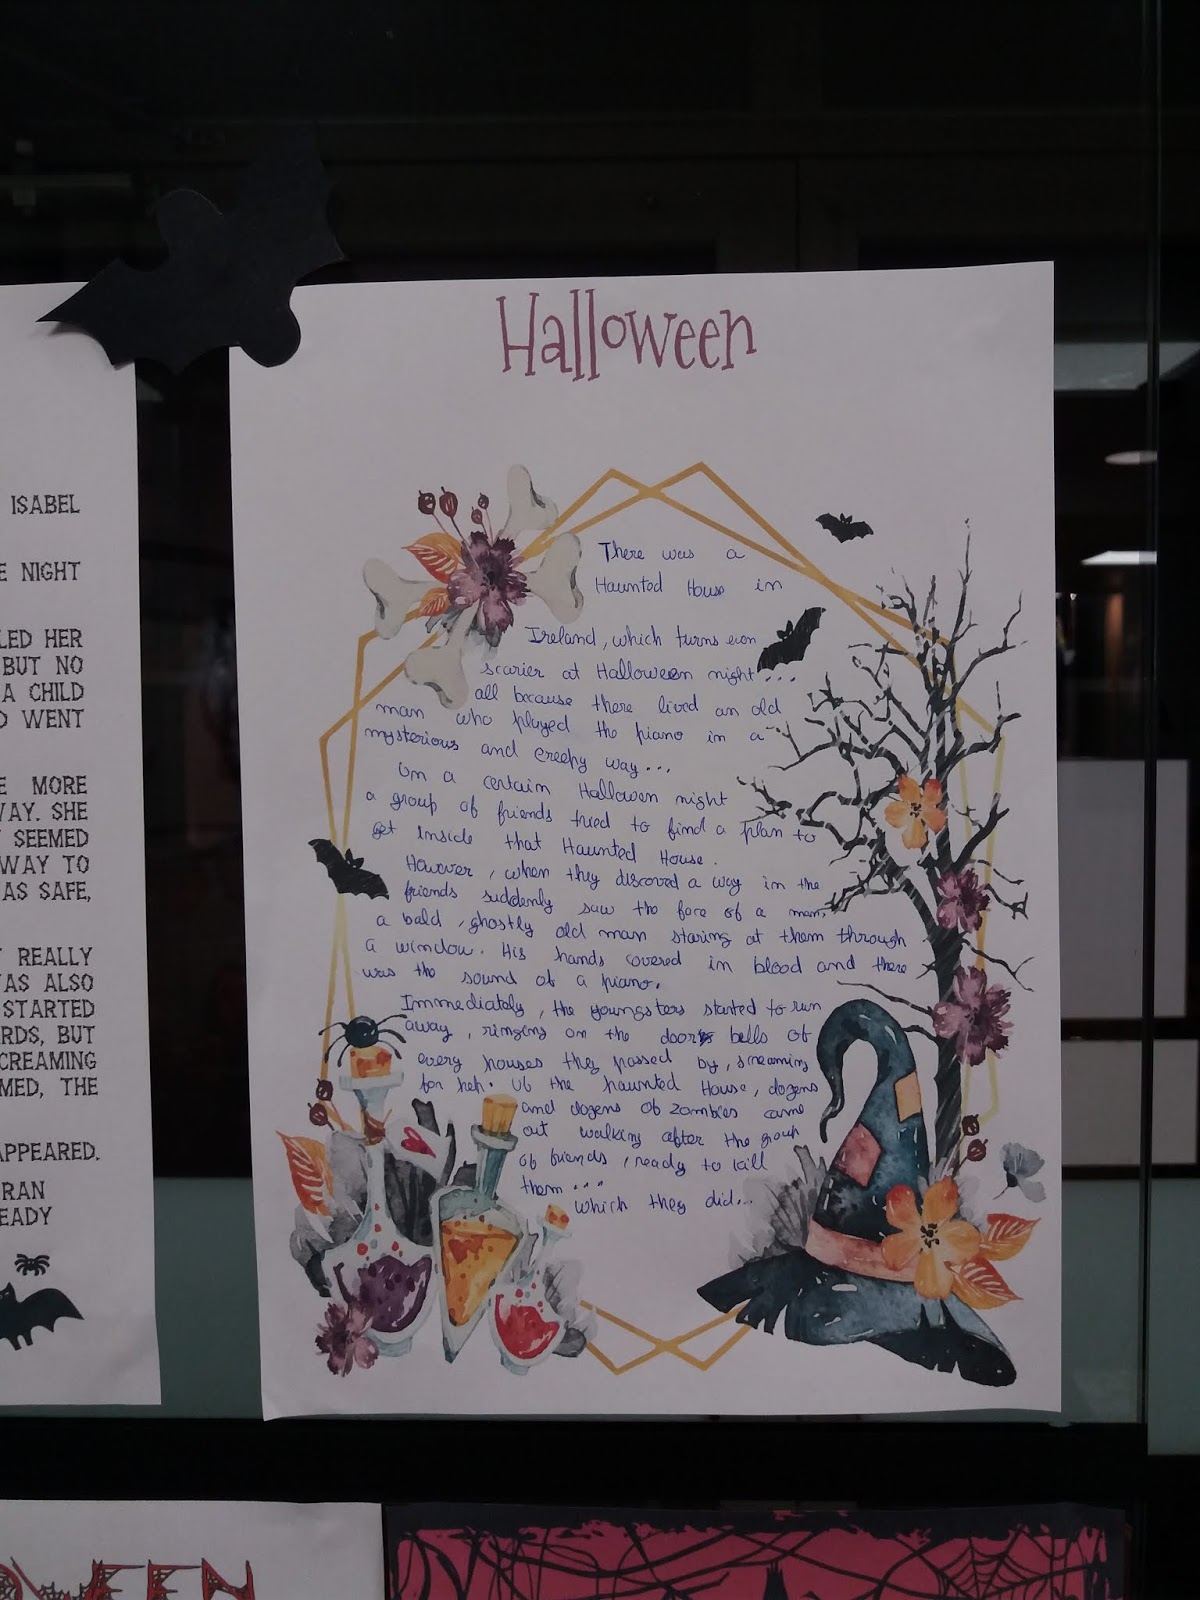 Halloween
There was a
Haunted House in
Ireland, which turns even
scarier at Halloween night...
all because there lived an old
man who played the piano in a
mysterious and creepy way...
On a certain Hallowen night
a group of friends tried to find a plan to
get inside that Haunted House.
However, when they discoved a way in the
friends suddenly saw the face of a man,
a bald, ghostly old man staring at them through
a window. His hands covered in blood and there
was the sound of a piano.
Immediately, the youngsters started to run
away, ringing on the door bells of
every houses they passed by, screaming
for help. Of the haunted House, dozens
and dozens of zombies came
out walking after the group
of friends, ready to kill
them...
which they did...
ISABEL
E NIGHT
LED HER
BUT NO
A CHILD
D WENT
E MORE
WAY. SHE
SEEMED
WAY TO
AS SAFE,
REALLY
AS ALSO
STARTED
RDS, BUT
CREAMING
MED, THE
APPEARED.
RAN
EADY
OWEEN